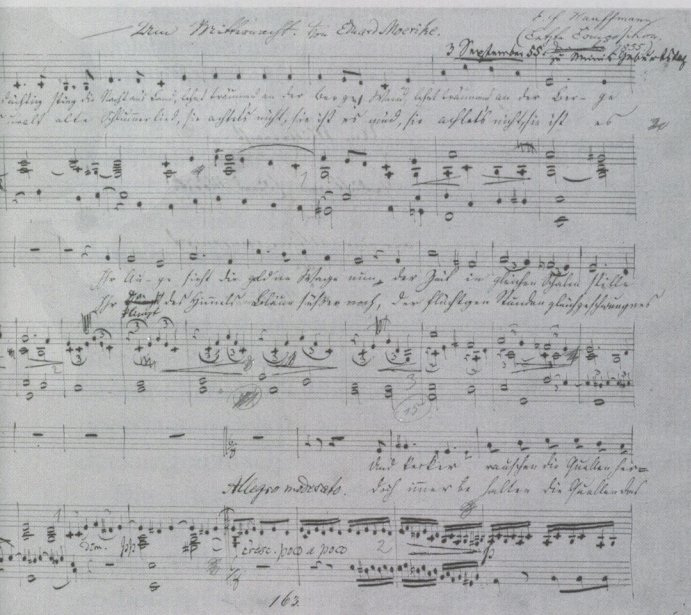 Um Mitternacht. von Eduard Moerike.
E. f. Kauffmann
(Letzte Composition.
1855)
3 September 55.
zu Geburtstag
dächtig stieg die Nacht ans Land, lehnt träumend an der Berge Wand, lehnt träumend an der Ber- ge
uralt alte Schlummerlied, sie achtets nicht, sie ist es müd, sie achtets nicht, sie ist es
Ihr Au- ge sieht die goldne Wage nun, der Zeit in gleichen Schalen stille
Ihr klingt des Himmels Bläue süßer noch, der flüchtgen Stunden gleichgeschwungnes
2
3
15
Und kecker rauschen die Quellen her=
Allegro moderato. doch immer be halten die Quellen das
dim. pp cresc. poco a poco 2 p
163.